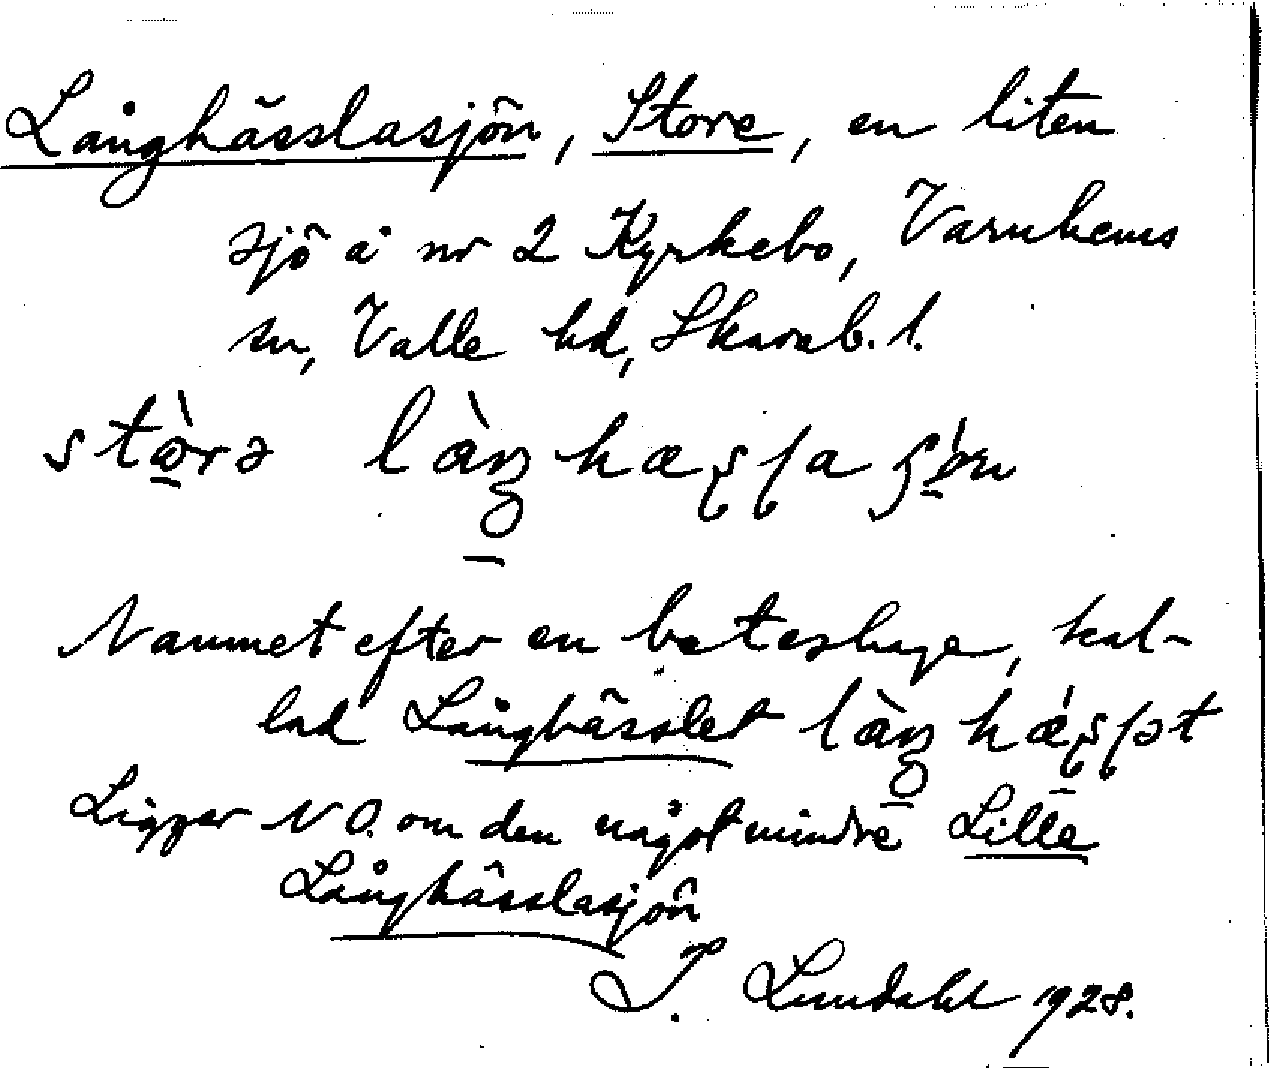 Långhässlasjön, Store, en liten
sjö å nr 2 Kyrkebo, Varnhems
sn, Valle hd, Skarab. l.
stǫ̀rə làŋhæʂʂaʂǿn
Namnet efter en beteshage, kal-
lad Långhässlet làŋhǽʂʂət
Ligger NO. om den något mindre Lilla
Långhässlasjön
I. Lundahl 1928.